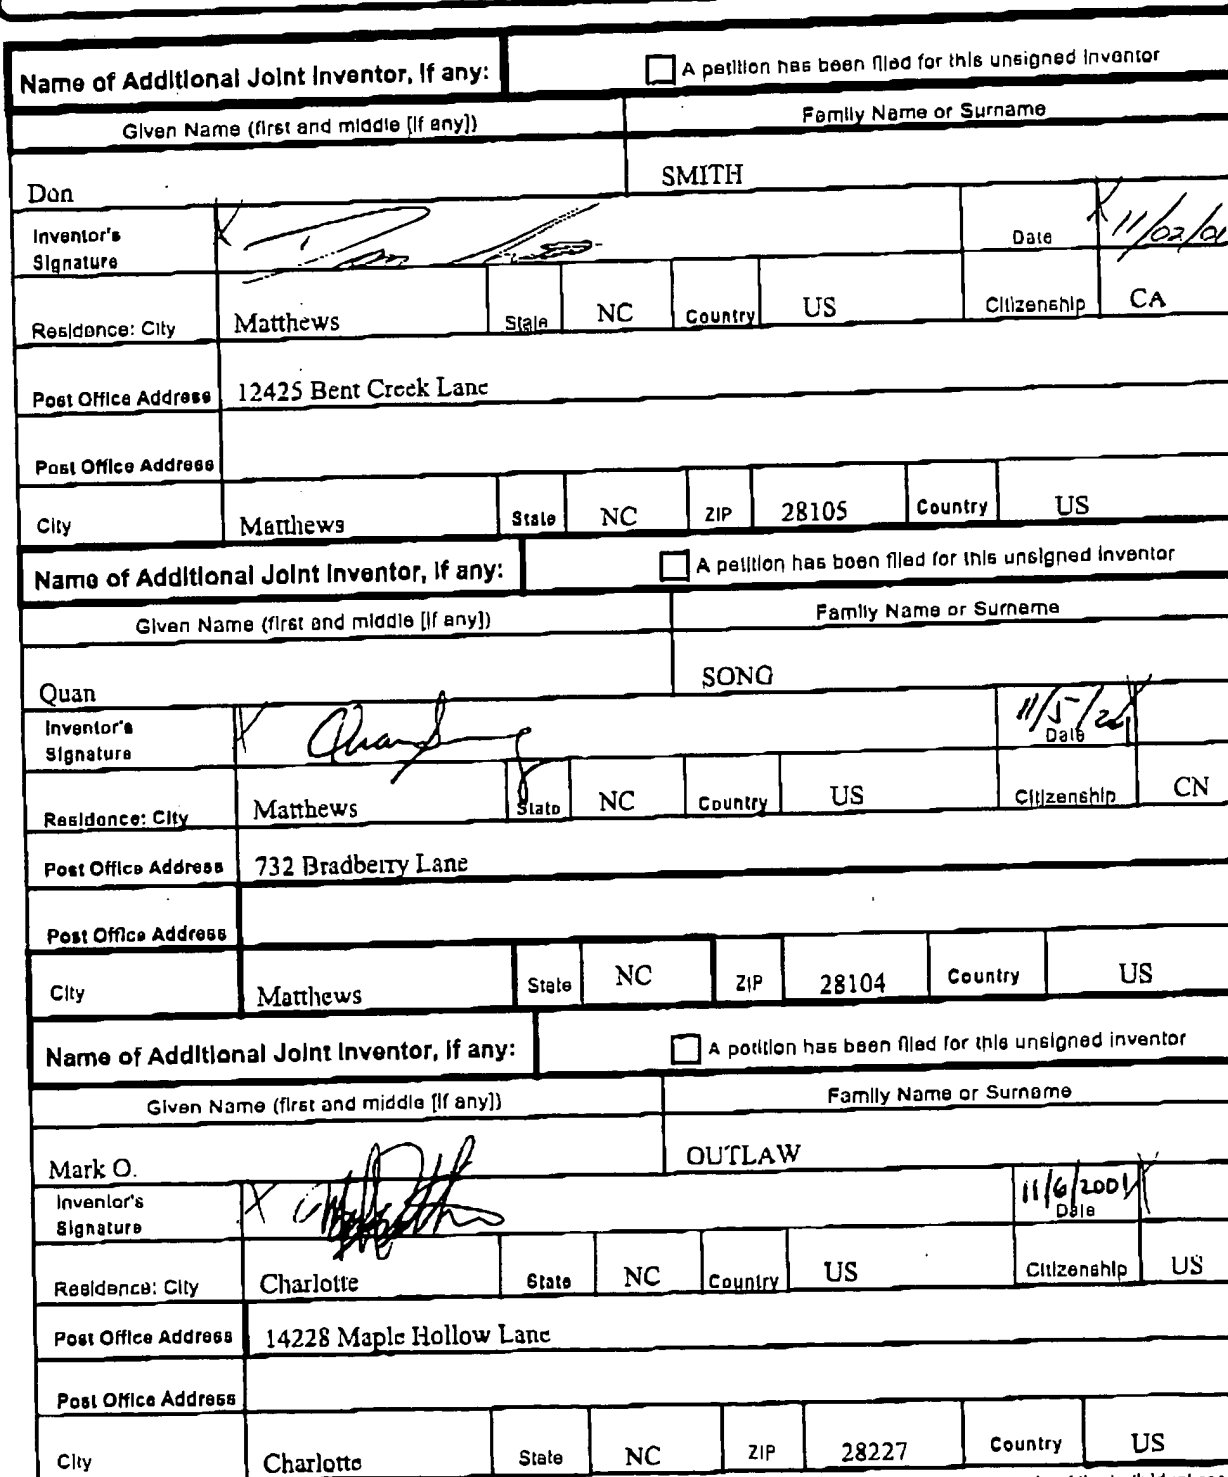 Name of Additional Joint Inventor, if any: A petition has been filed for this unsigned inventor
Given Name (first and middle [if any]) Family Name or Surname
Don SMITH
Inventor's Signature Date 11/02/01
Residence: City Matthews State NC Country US Citizenship CA
Post Office Address 12425 Bent Creek Lane
Post Office Address
City Matthews State NC ZIP 28105 Country US
Name of Additional Joint Inventor, if any: A petition has been filed for this unsigned inventor
Given Name (first and middle [if any]) Family Name or Surname
Quan SONG
Inventor's Signature Quan Song 11/5/ Date
Residence: City Matthews State NC Country US Citizenship CN
Post Office Address 732 Bradberry Lane
Post Office Address
City Matthews State NC ZIP 28104 Country US
Name of Additional Joint Inventor, if any: A petition has been filed for this unsigned inventor
Given Name (first and middle [if any]) Family Name or Surname
Mark O. OUTLAW
Inventor's Signature 11/6/2001 Date
Residence: City Charlotte State NC Country US Citizenship US
Post Office Address 14228 Maple Hollow Lane
Post Office Address
City Charlotte State NC ZIP 28227 Country US